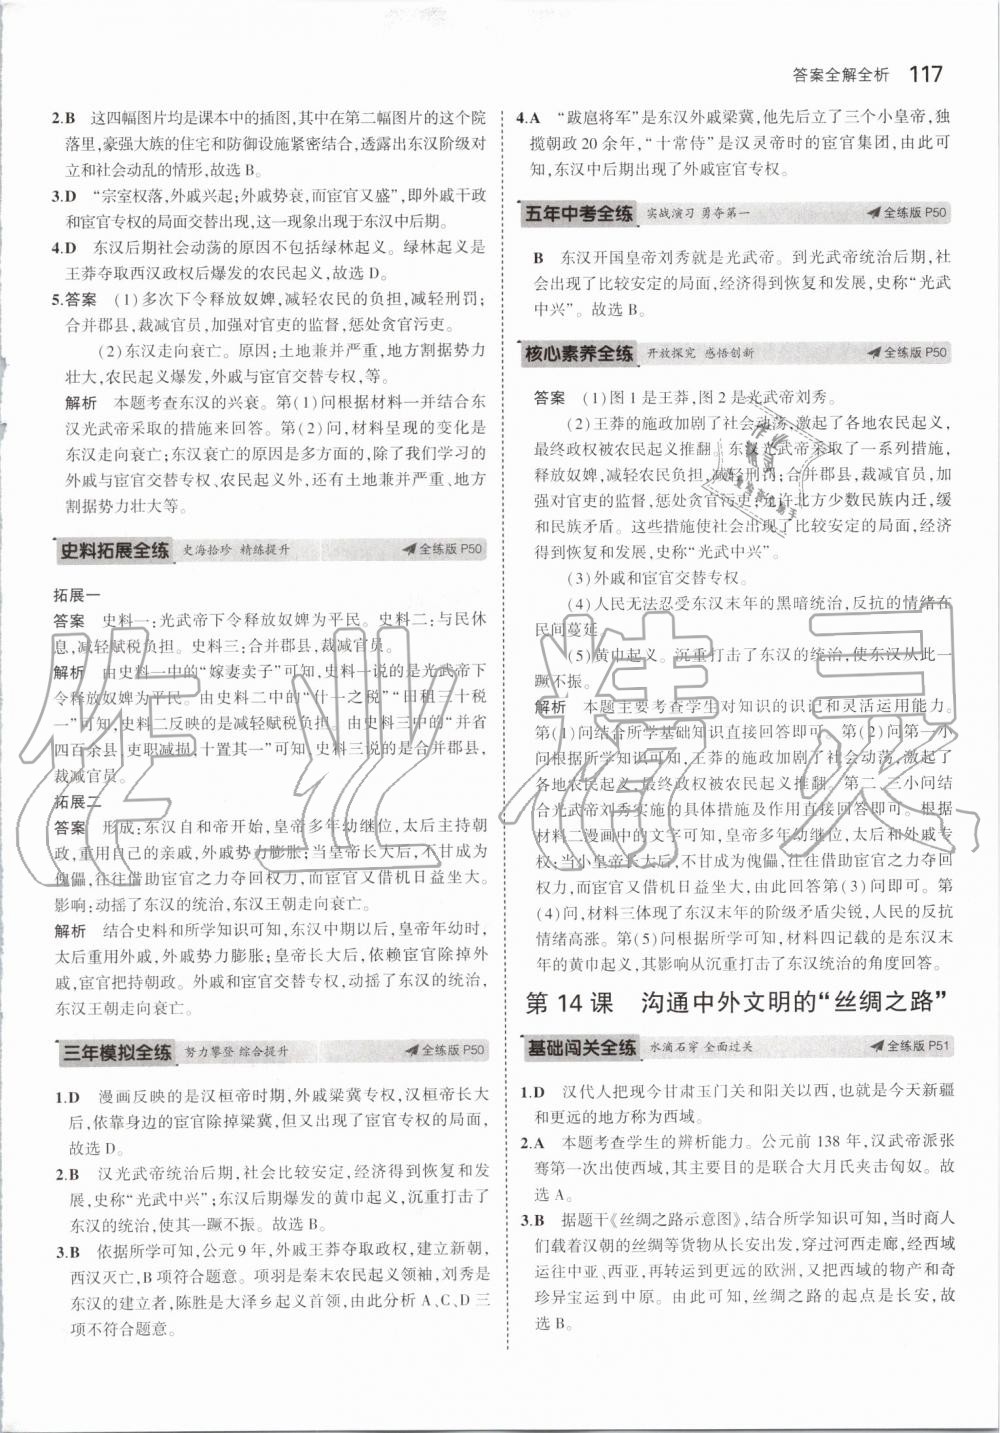 答案全解全析 117
2.B 这四幅图片均是课本中的插图,其中在第二幅图片的这个院
落里,豪强大族的住宅和防御设施紧密结合,透露出东汉阶级对
立和社会动乱的情形,故选 B。
3.D “宗室权落,外戚兴起;外戚势衰,而宦官又盛”,即外戚干政
和宦官专权的局面交替出现,这一现象出现于东汉中后期。
4.D 东汉后期社会动荡的原因不包括绿林起义。绿林起义是
王莽夺取西汉政权后爆发的农民起义,故选 D。
5.答案 (1)多次下令释放奴婢,减轻农民的负担,减轻刑罚;
合并郡县,裁减官员,加强对官吏的监督,惩处贪官污吏。
(2)东汉走向衰亡。原因:土地兼并严重,地方割据势力
壮大,农民起义爆发,外戚与宦官交替专权,等。
解析 本题考查东汉的兴衰。第(1)问根据材料一并结合东
汉光武帝采取的措施来回答。第(2)问,材料呈现的变化是
东汉走向衰亡;东汉衰亡的原因是多方面的,除了我们学习的
外戚与宦官交替专权、农民起义外,还有土地兼并严重、地方
割据势力壮大等。
史料拓展全练 史海拾珍 精练提升 全练版 P50
拓展一
答案 史料一:光武帝下令释放奴婢为平民。史料二:与民休
息,减轻赋税负担。史料三:合并郡县,裁减官员。
解析 由史料一中的“嫁妻卖子”可知,史料一说的是光武帝下
令释放奴婢为平民。由史料二中的“什一之税”“田租三十税
一”可知,史料二反映的是减轻赋税负担。由史料三中的“并省
四百余县,吏职减损,十置其一”可知,史料三说的是合并郡县,
裁减官员。
拓展二
答案 形成:东汉自和帝开始,皇帝多年幼继位,太后主持朝
政,重用自己的亲戚,外戚势力膨胀;当皇帝长大后,不甘成为
傀儡,往往借助宦官之力夺回权力,而宦官又借机日益坐大。
影响:动摇了东汉的统治,东汉王朝走向衰亡。
解析 结合史料和所学知识可知,东汉中期以后,皇帝年幼时,
太后重用外戚,外戚势力膨胀;皇帝长大后,依赖宦官除掉外
戚,宦官把持朝政。外戚和宦官交替专权,动摇了东汉的统治,
东汉王朝走向衰亡。
三年模拟全练 努力攀登 综合提升 全练版 P50
1.D 漫画反映的是汉桓帝时期,外戚梁冀专权,汉桓帝长大
后,依靠身边的宦官除掉梁冀,但又出现了宦官专权的局面,
故选 D。
2.B 汉光武帝统治后期,社会比较安定,经济得到恢复和发
展,史称“光武中兴”;东汉后期爆发的黄巾起义,沉重打击了
东汉的统治,使其一蹶不振。故选 B。
3.B 依据所学可知,公元 9 年,外戚王莽夺取政权,建立新朝,
西汉灭亡,B 项符合题意。项羽是秦末农民起义领袖,刘秀是
东汉的建立者,陈胜是大泽乡起义首领,由此分析 A、C、D 三
项不符合题意。
4.A “跋扈将军”是东汉外戚梁冀,他先后立了三个小皇帝,独
揽朝政 20 余年,“十常侍”是汉灵帝时的宦官集团,由此可
知,东汉中后期出现了外戚宦官专权。
五年中考全练 实战演习 勇夺第一 全练版 P50
B 东汉开国皇帝刘秀就是光武帝。到光武帝统治后期,社
会出现了比较安定的局面,经济得到恢复和发展,史称“光武
中兴”。故选 B。
核心素养全练 开放探究 感悟创新 全练版 P50
答案 (1)图 1 是王莽,图 2 是光武帝刘秀。
(2)王莽的施政加剧了社会动荡,激起了各地农民起义,
最终政权被农民起义推翻。东汉光武帝采取了一系列措施,
释放奴婢,减轻农民负担,减轻刑罚;合并郡县,裁减官员,加
强对官吏的监督,惩处贪官污吏;允许北方少数民族内迁,缓
和民族矛盾。这些措施使社会出现了比较安定的局面,经济
得到恢复和发展,史称“光武中兴”。
(3)外戚和宦官交替专权。
(4)人民无法忍受东汉末年的黑暗统治,反抗的情绪在
民间蔓延。
(5)黄巾起义。沉重打击了东汉的统治,使东汉从此一
蹶不振。
解析 本题主要考查学生对知识的识记和灵活运用能力。
第(1)问结合所学基础知识直接回答即可。第(2)问第一小
问根据所学知识可知,王莽的施政加剧了社会动荡,激起了
各地农民起义,最终政权被农民起义推翻。第二、三小问结
合光武帝刘秀实施的具体措施及作用直接回答即可。根据
材料二漫画中的文字可知,皇帝多年幼继位,太后和外戚专
权;当小皇帝长大后,不甘成为傀儡,往往借助宦官之力夺回
权力,而宦官又借机日益坐大,由此回答第(3)问即可。第
(4)问,材料三体现了东汉末年的阶级矛盾尖锐,人民的反抗
情绪高涨。第(5)问根据所学可知,材料四记载的是东汉末
年的黄巾起义,其影响从沉重打击了东汉统治的角度回答。
第 14 课 沟通中外文明的“丝绸之路”
基础闯关全练 水滴石穿 全面过关 全练版 P51
1.D 汉代人把现今甘肃玉门关和阳关以西,也就是今天新疆
和更远的地方称为西域。
2.A 本题考查学生的辨析能力。公元前 138 年,汉武帝派张
骞第一次出使西域,其目的是联合大月氏夹击匈奴。故
选 A。
3.B 据题干《丝绸之路示意图》,结合所学知识可知,当时商人
们载着汉朝的丝绸等货物从长安出发,穿过河西走廊,经西域
运往中亚、西亚,再转运到更远的欧洲,又把西域的物产和奇
珍异宝运到中原。由此可知,丝绸之路的起点是长安,故
选 B。
作业精灵